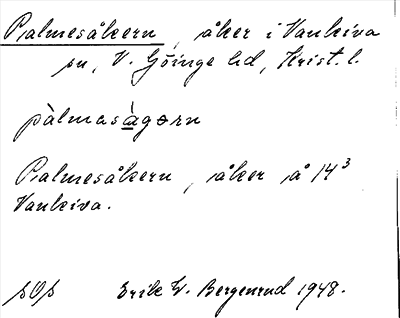 Palmesåkern, åker i Vankiva
sn, V. Göinge hd, Krist. l.
pàlmasàgərn
Palmesåkern, åker å 14³
Vankiva.
sOs Erik W. Bergenrud 1948.